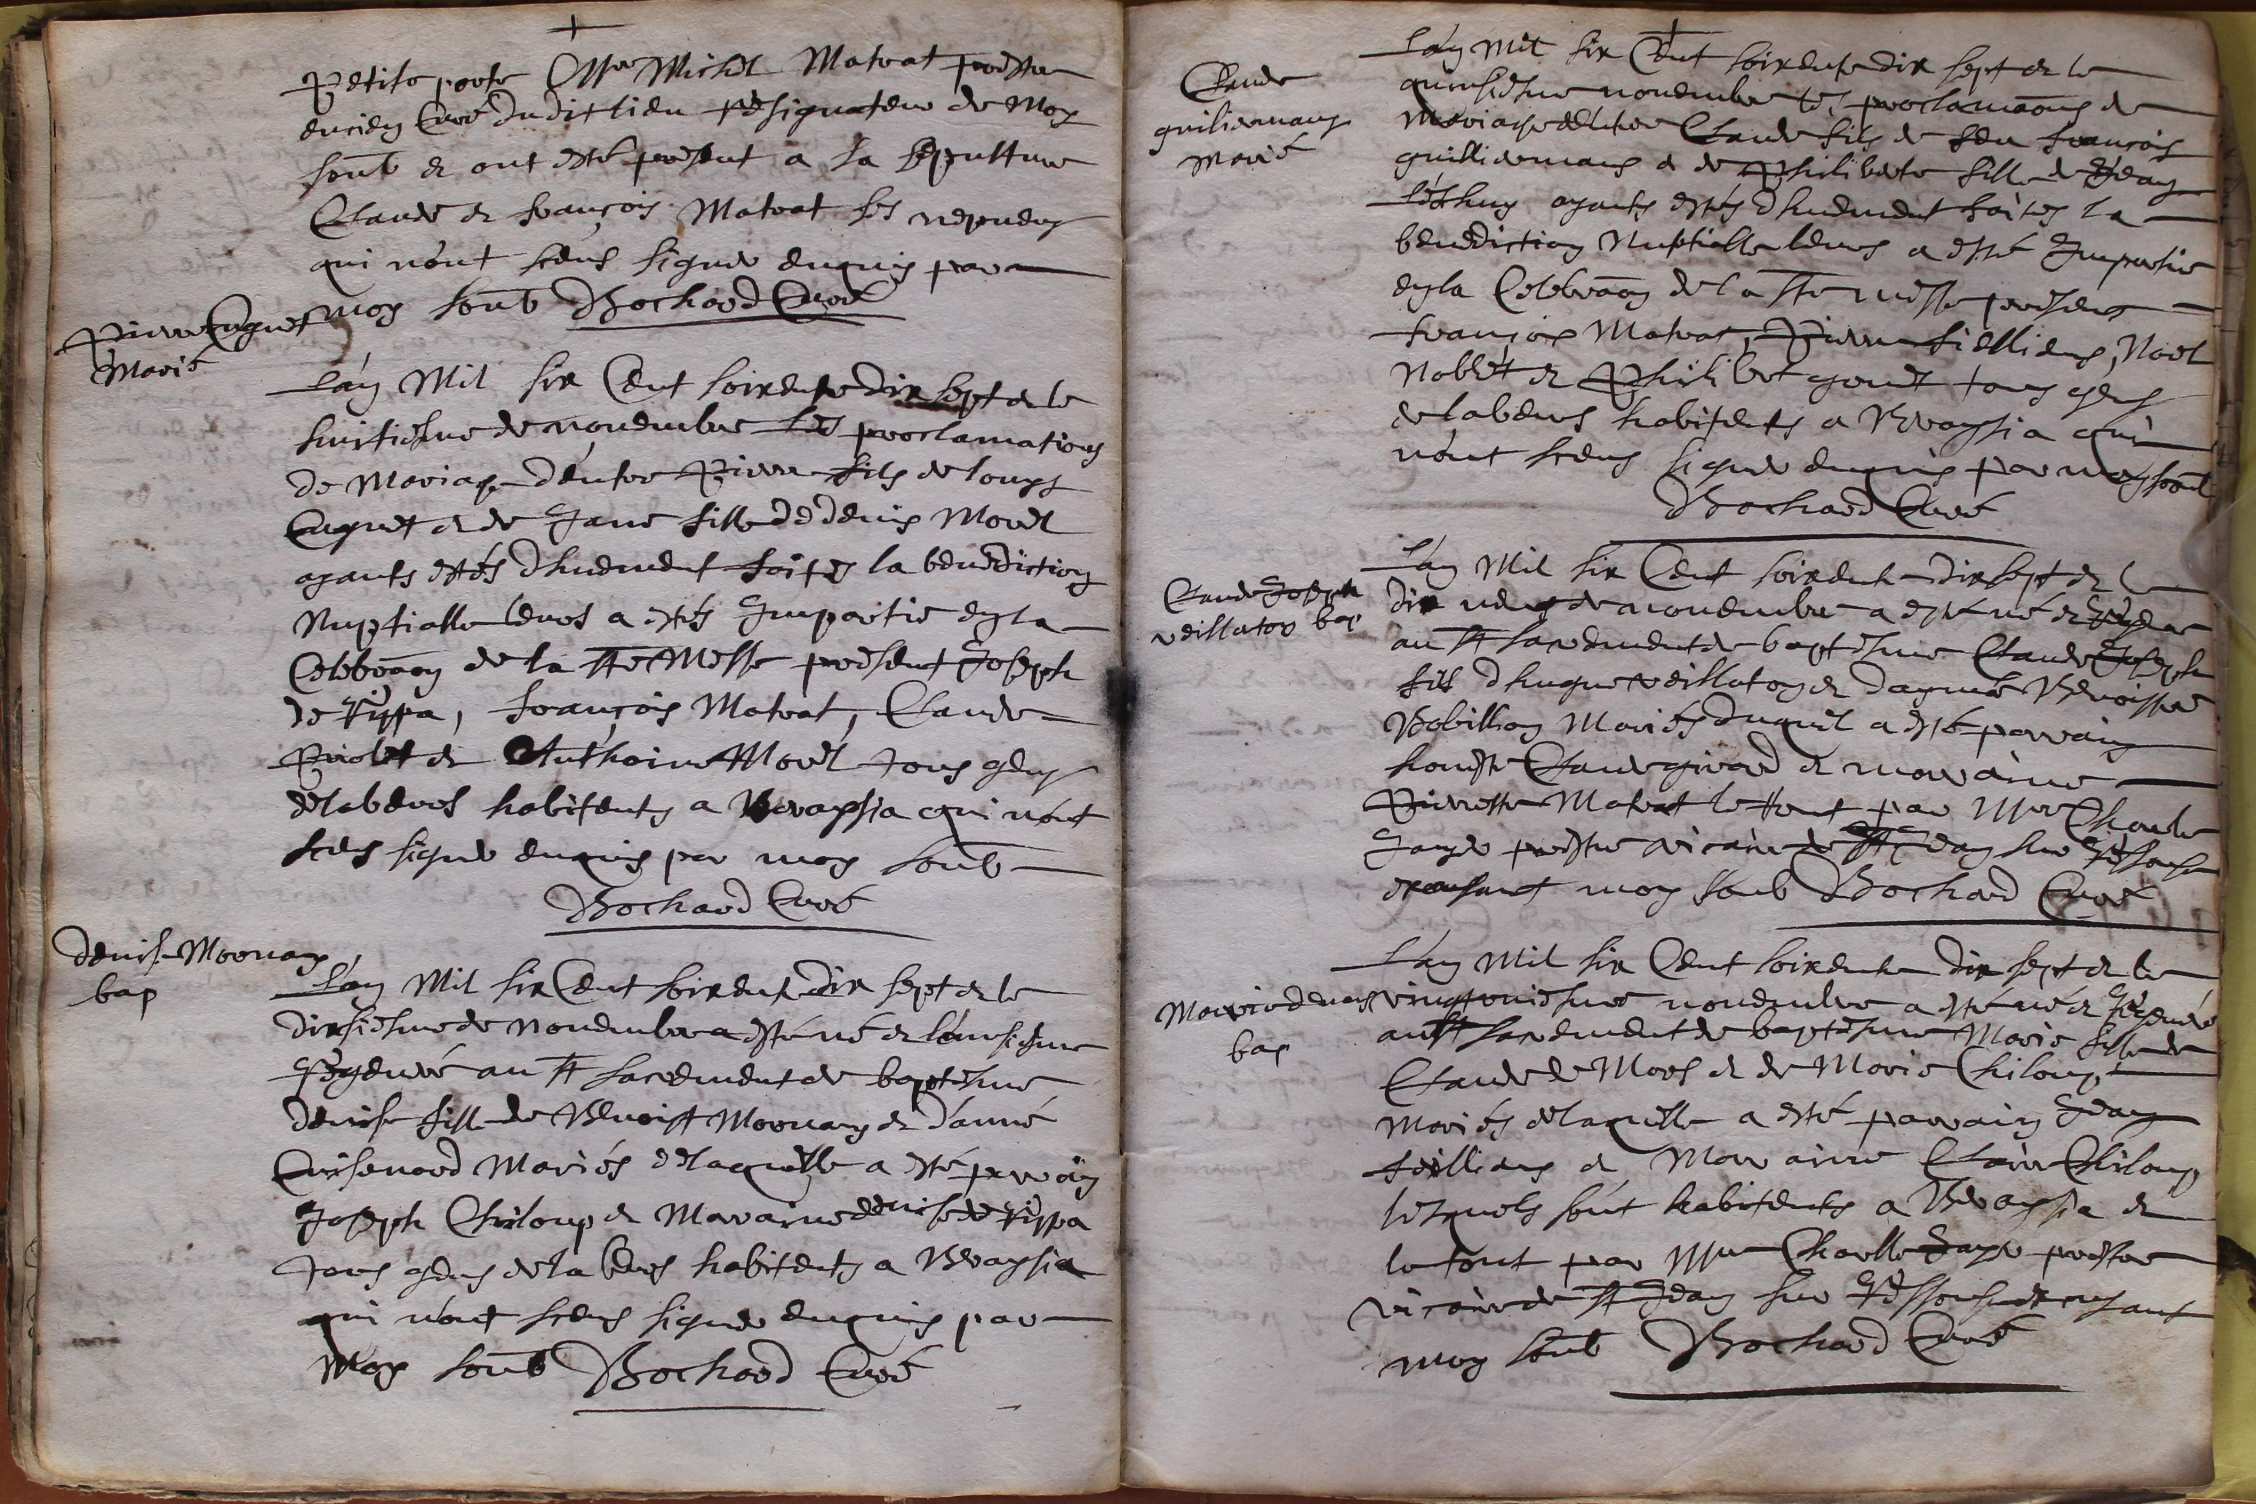 petite porte Mre Michel Matrat prestre
encien Curé dudit lieu resignateur de Moy
soub et ont esté present a la sepulture
Claude et françois Matrat ses nepueuz
qui n'ont sceus signer enquis par
moy soub Bochard Curé
Pierre Cuynet
Marié
L'an Mil six Cent soixente dix sept et le
huictiesme de novembre les proclamations
de Mariage d'entre Pierre fils de Louys
Cuynet et de Jane fille de denis Morel
ayants estés dhuement faites la benediction
Nuptialle leurs a estés Impartie en la
Celebraon de la Ste Messe present Joseph
de Rippa, françois Matrat, Claude
Piolet et Anthoine Morel tous gens
de labeurs habitents a Bragsia qui n'ont
sceus signer enquis par moy soub
Bochard Curé
denise Moornay
bap
L'an Mil six Cent soixente dix sept et le
dixsiesme de Novembre a esté né et l'onsiesme
Regenré au St sacrement de baptesme
denise fille de Benoist Moornay et d'anne
Cuisenard Mariés de laquelle a esté parrain
Joseph Chiloup et Maraine denise de Rippa
tous gens de labeurs habitents a Bragsia
qui n'ont sceus signer enquis par
Moy soub Bochard Curé
Claude
guiliermans
Marié
L'an Mil six Cent soixente dix sept et le
quinsiesme novembre les proclamaons de
Mariage d'entre Claude fils de feu françois
guilliermans et de Philiberte fille de Jean
ayants estés dhuement faites la
benediction Nuptialle leurs a esté Impartie
en la Celebraon de la Ste messe presens
françois Matrat, Pierre fillliens, Noel
Noblet et Philibert genet tous gens
de labeurs habitents a Bragsia qui
n'ont sceus signer enquis par moy soub
Bochard Curé
Claude Joseph
veillaton bap
L'an Mil six Cent soixente dix sept et le
dix neuf de novembre a esté né et Regenre
au St sacrement de baptesme Claude Joseph
fils d'hugue veillaton et dagmée Benoiste
Bobillion Mariés duquel a esté parrain
honeste Claude girard et maraine
Pierrette Matrat le tout par Mre Charle
Janyr prestre vicaire de St Jean sur Ressouse
excusant moy soub Bochard Curé
Marie de mors
bap
L'an Mil six Cent soixente dix sept et le
vingtroisiesme novembre a esté né et Regenré
au St sacrement de baptesme Marie fille de
Claude de Mors et de Marie Chiloup
Mariés de laquelle a esté parrain Jean
feilliens et Maraine Claire Chiloup
lesquels sont habitents a Bragsia et
le tout par Mre Charle Janyr prestre
vicaire de St Jean sur Ressouse excusant
moy soub Bochard Curé